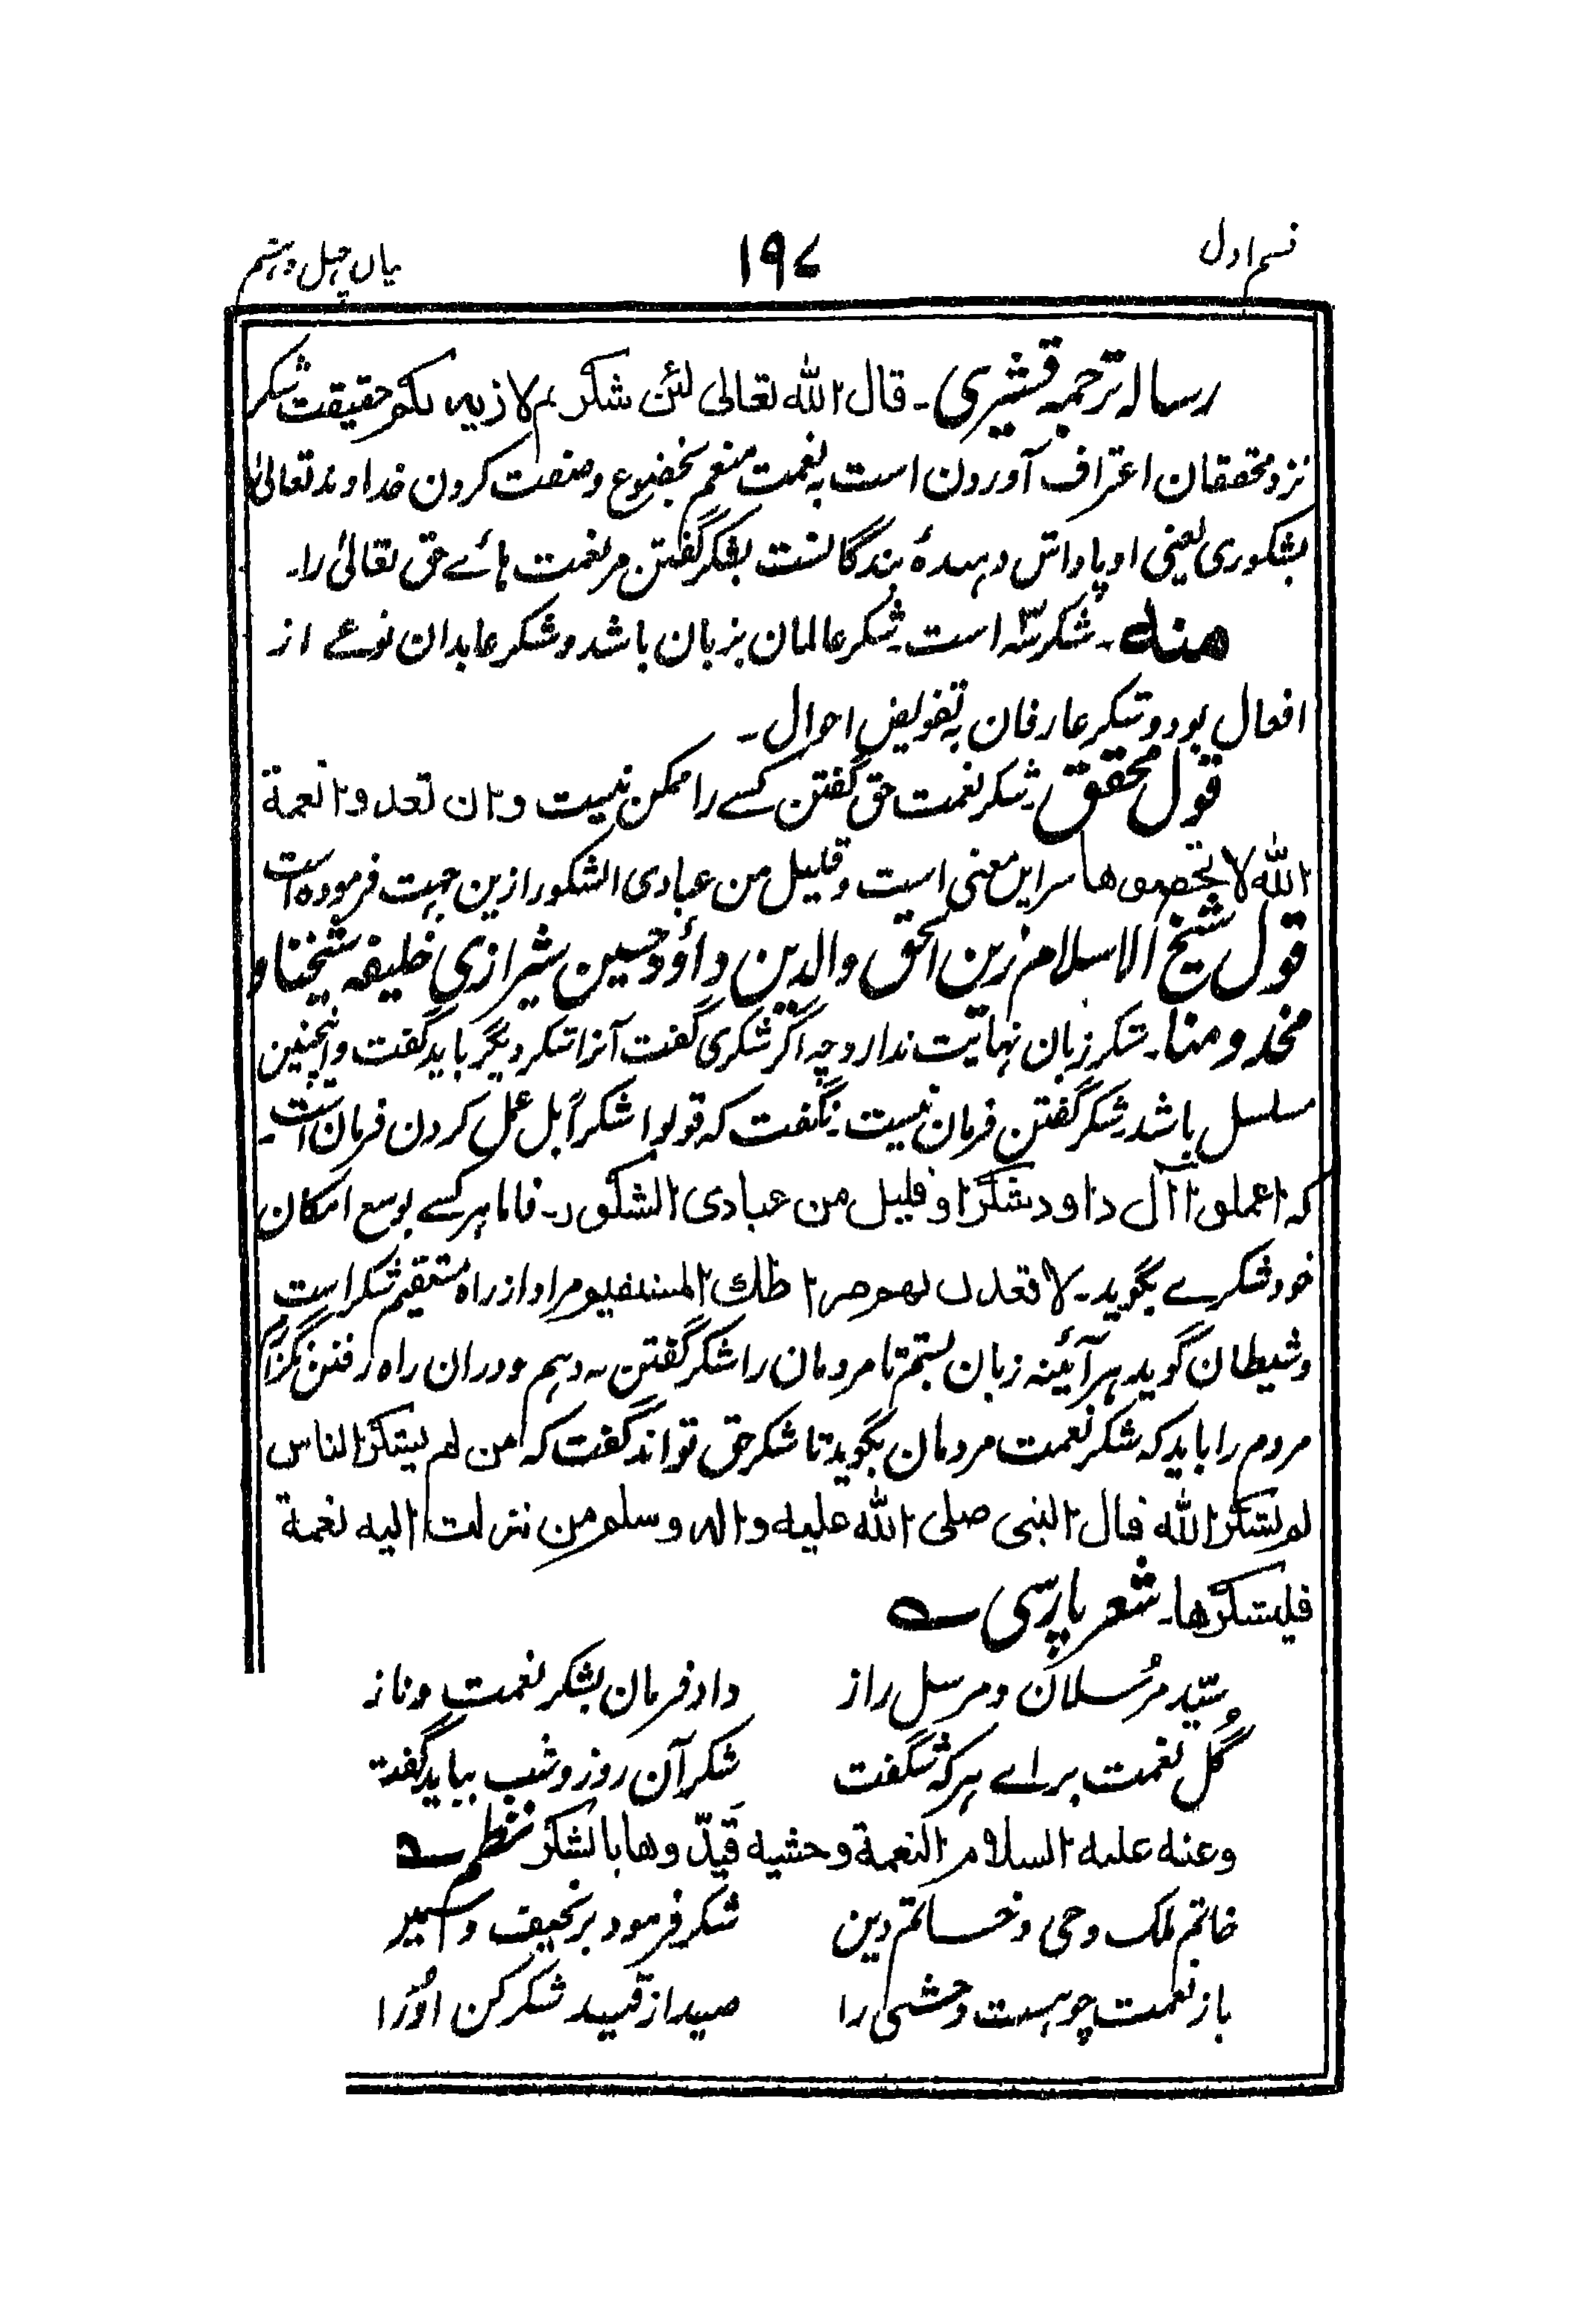 قسم اول
۱۹۷
بیان چہل وہشتم
رسالہ ترجمہ قشیری۔ قال اللہ تعالی لئن شکرتم لازیدنکم حقیقت شکر
نزد محققان اعتراف آوردن است بہ نعمت منعم بخضوع وصفت کردن خداوند تعالیٰ
بشکوری یعنی او پاداش دہندۂ بندگانست بشکر گفتن مر نعمت ہائے حق تعالیٰ را۔
منہ۔ شکر سہ است۔ شکر عالمان بزبان باشد و شکر عابدان نوعے از
افعال بود و شکر عارفان بہ تفویض احوال۔
قول محقق۔ شکر نعمت حق گفتن کسے را ممکن نیست وان تعدوا نعمة
اللہ لا تحصوها سر این معنی است وقلیل من عبادی الشکور ازین جہت فرمودہ است
قول شیخ الاسلام زین الحق والدین داؤد حسین شیرازی خلیفہ شیخنا و
مخدومنا۔ شکر زبان نہایت ندارد چہ اگر شکری گفت آنرا شکر دیگر باید گفت وہمچنین
مسلسل باشد۔ شکر گفتن فرمان نیست۔ نگفت کہ قولوا شکراً بل عمل کردن فرمان است۔
کہ اعملوا آل داود شکرا وقلیل من عبادی الشکور۔ فاما ہر کسے بوسع امکان
خود شکرے بگوید۔ لاقعدن لهم صراطك المستقیم مراد از راہ مستقیم شکر است
وشیطان گوید ہر آئینہ زبان بستم تا مردمان را شکر گفتن نہ دہم ودران راہ رفتن نگزارم
مردم را باید کہ شکر نعمت مردمان بگوید تا شکر حق تواند گفت کہ من لم یشکر الناس
لم یشکر اللہ قال النبی صلی اللہ علیہ والہ وسلم من نزلت الیہ نعمة
فلیشکرها۔ شعر پارسی ؎
سیّد مُرسلان و مرسل راز داد فرمان بشکر نعمت و ناز
گُل نعمت براے ہر کہ شگفت شکر آن روز و شب بباید گفت
وعنہ علیہ السلام النعمة وحشیه قَیّدوها بالشکر نظم ؎
خاتم ملک وحی و خاتم دین شکر فرمود بر نحیف و
باز نعمت چو ہست وحشی را صید از قید شکر کن اورا